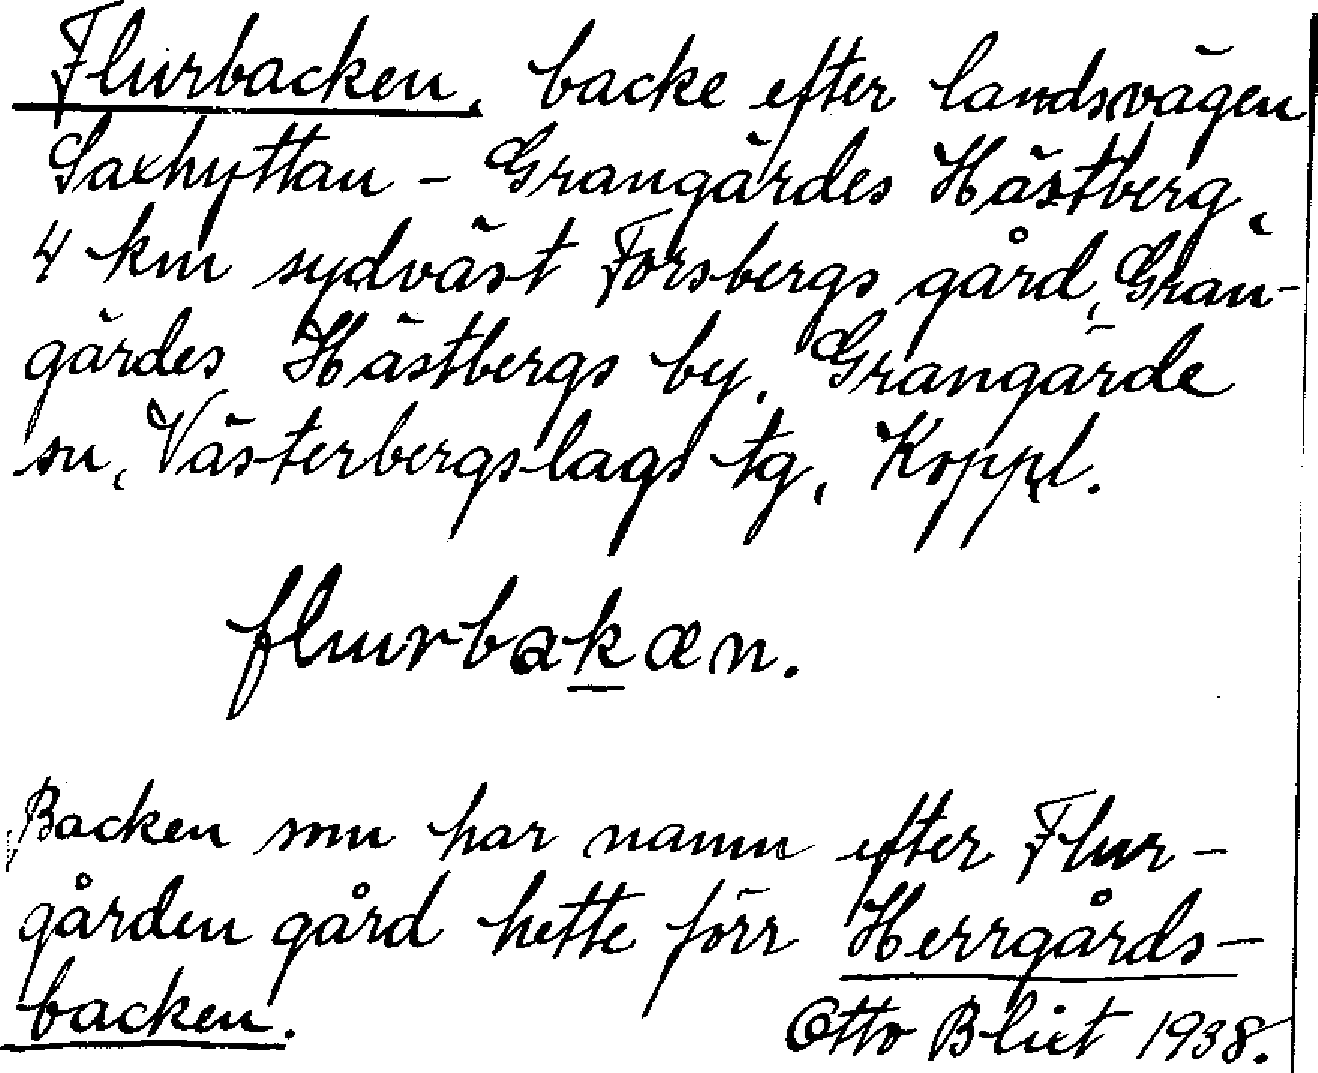 Flurbacken, backe efter landsvägen
Saxhyttan - Grangärdes Hästberg,
4 km sydväst Forsbergs gård, Gran-
gärdes Hästbergs by. Grangärde
sn, Västerbergslags tg, Koppl.
flurbakæn.
Backen som har namn efter Flur-
gården gård hette förr Herrgårds-
backen.
Otto Blixt 1938.